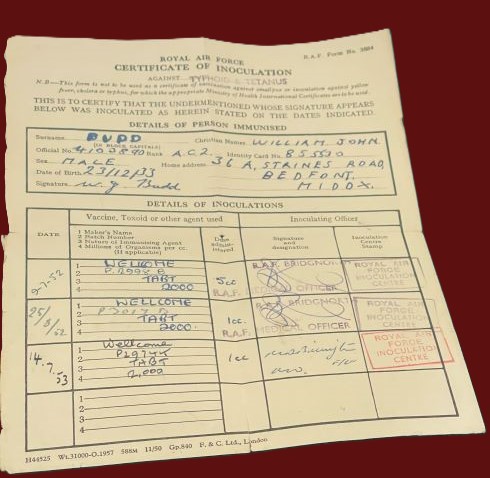 R.A.F. Form No. 3884
ROYAL AIR FORCE
CERTIFICATE OF INOCULATION
AGAINST TYPHOID & TETANUS
N.B—This form is not to be used as a certificate of vaccination against smallpox or inoculation against yellow
fever, cholera or typhus, for which the appropriate Ministry of Health International Certificates are to be used.
THIS IS TO CERTIFY THAT THE UNDERMENTIONED WHOSE SIGNATURE APPEARS
BELOW WAS INOCULATED AS HEREIN STATED ON THE DATES INDICATED.
DETAILS OF PERSON IMMUNISED
Surname BUDD Christian Names WILLIAM JOHN
(IN BLOCK CAPITALS)
Official No. 4103890 Rank A.C.2 Identity Card No.
Sex MALE Home address 36A, STAINES ROAD,
Date of Birth 23/12/33 BEDFONT,
Signature W. J. Budd MIDDX.
DETAILS OF INOCULATIONS
DATE
Vaccine, Toxoid or other agent used
1 Maker's Name
2 Batch Number
3 Nature of Immunising Agent
4 Millions of Organisms per cc.
(If applicable)
Dose
admin-
istered
Inoculating Officer
Signature
and
designation
Inoculation
Centre
Stamp
9-7-52
1 WELLCOME
2
3 TABT
4 2000
.5cc
R.A.F. BRIDGNORTH
MEDICAL OFFICER
ROYAL AIR
FORCE
INOCULATION
CENTRE
25/8/52
1 WELLCOME
2
3 TABT
4 2000
1cc.
R.A.F. BRIDGNORTH
MEDICAL OFFICER
ROYAL AIR
FORCE
INOCULATION
CENTRE
14.7.53
1 Wellcome
2
3 TABT
4 2,000
1cc
ROYAL AIR
FORCE
INOCULATION
CENTRE
1
2
3
4
H44525 Wt.31000-O.1957 588M 11/50 Gp.840 F. & C. Ltd., London